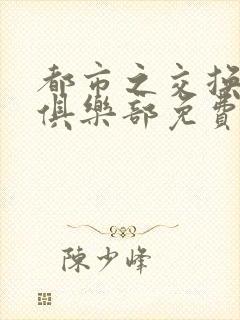 都市之交换
俱樂部免費
陳少峰